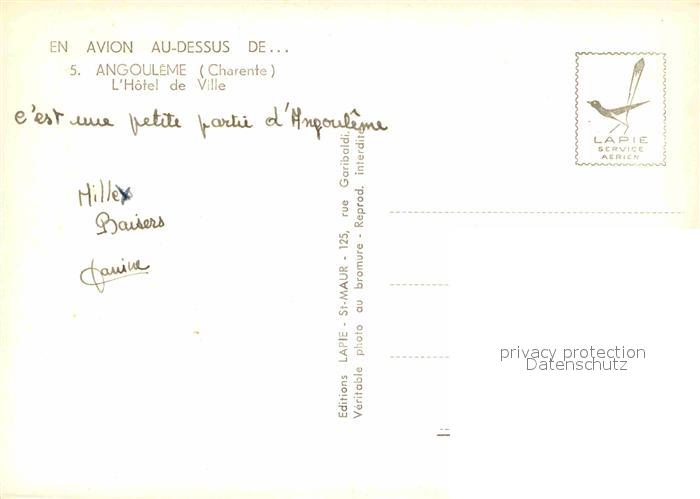 EN AVION AU-DESSUS DE...
5. ANGOULÊME (Charente)
L'Hôtel de Ville
c'est une petite partie d'Angoulême
Mille
Baisers
Janine
Editions LAPIE - St-MAUR - 125, rue Garibaldi.
Véritable photo au bromure - Reprod. interdite
LAPIE
SERVICE
AERIEN
privacy protection
Datenschutz